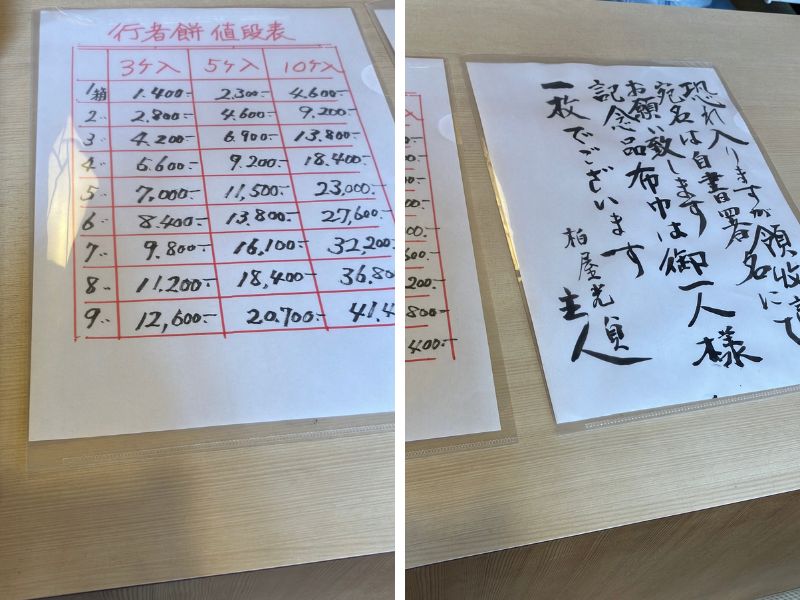 行者餅 値段表
3ケ入 5ケ入 10ケ入
1箱 1.400.- 2,300.- 4.600-
2〃 2.800.- 4.600.- 9.200-
3〃 4.200- 6.900.- 13.800-
4〃 5.600- 9.200- 18.400-
5〃 7,000- 11,500- 23,000-
6〃 8.400- 13.800- 27,600-
7〃 9.800- 16,100- 32,200-
8〃 11.200- 18,400- 36.80
9〃 12,600- 20.700- 41.4
入
00.-
600.-
200.-
800.-
400.-
恐れ入りますが領収書
宛名は自書署名にて
お願い致します
記念品布巾は御一人様
一枚でございます
柏屋光貞
主人